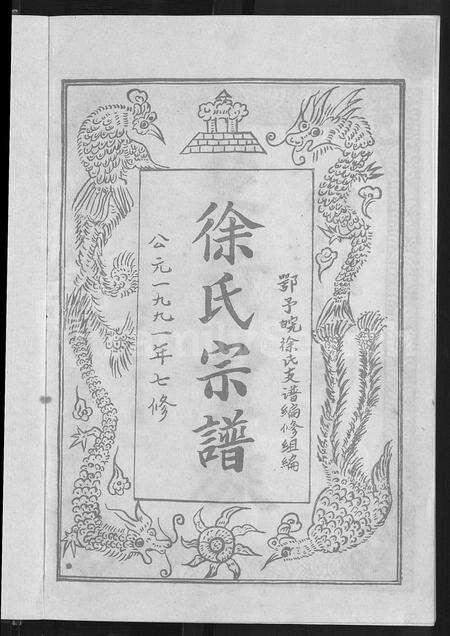 鄂予皖徐氏支谱编修组编
徐氏宗譜
公元一九九一年七修